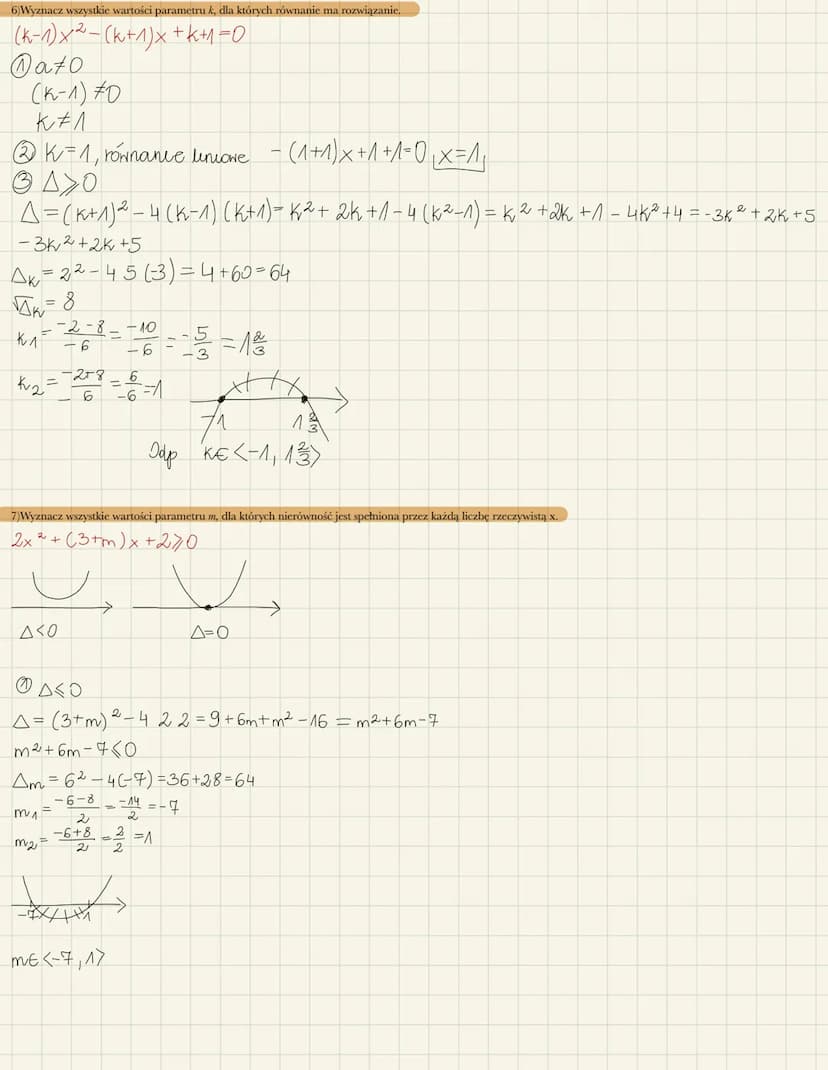 6)Wyznacz wszystkie wartości parametru k, dla których równanie ma rozwiązanie.
(k-1)x²-(k+1)x+k+1=0
① a≠0
(k-1)≠0
k≠1
② k=1, równanie liniowe -(1+1)x+1+1=0 x=1
③ Δ⩾0
Δ=(k+1)²-4(k-1)(k+1)=k²+2k+1-4(k²-1)=k²+2k+1-4k²+4=-3k²+2k+5
-3k²+2k+5
Δk=2²-4 5(-3)=4+60=64
√Δk=8
k1=-2-8/-6=-10/-6=-5/-3=1 2/3
k2=-2+8/-6=6/-6=-1
-1 1 2/3
Odp k∈<-1, 1 2/3>
7)Wyznacz wszystkie wartości parametru m, dla których nierówność jest spełniona przez każdą liczbę rzeczywistą x.
2x²+(3+m)x+2⩾0
Δ<0 Δ=0
① Δ⩽0
Δ=(3+m)²-4 2 2=9+6m+m²-16=m²+6m-7
m²+6m-7⩽0
Δm=6²-4(-7)=36+28=64
m1=-6-8/2=-14/2=-7
m2=-6+8/2=2/2=1
-7 1
m∈<-7,1>